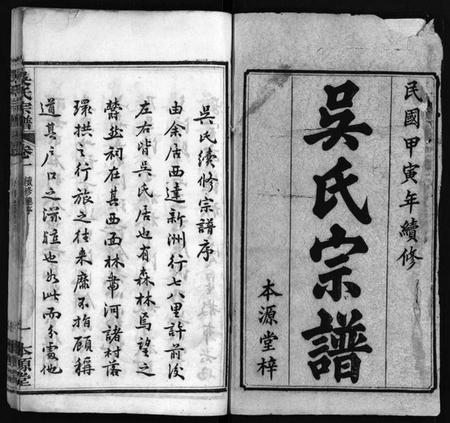 民國甲寅年續修
吳氏宗譜
本源堂梓
吳氏續修宗譜序
由余居西達新洲行七八里許前後
左右皆吳氏居也有森林焉望之
蔚然祠在其西西林帶河諸村落
環拱之行旅之往來靡不指顧稱
道其戶口之深也如此而分處他
吳氏宗譜 卷一
本源堂